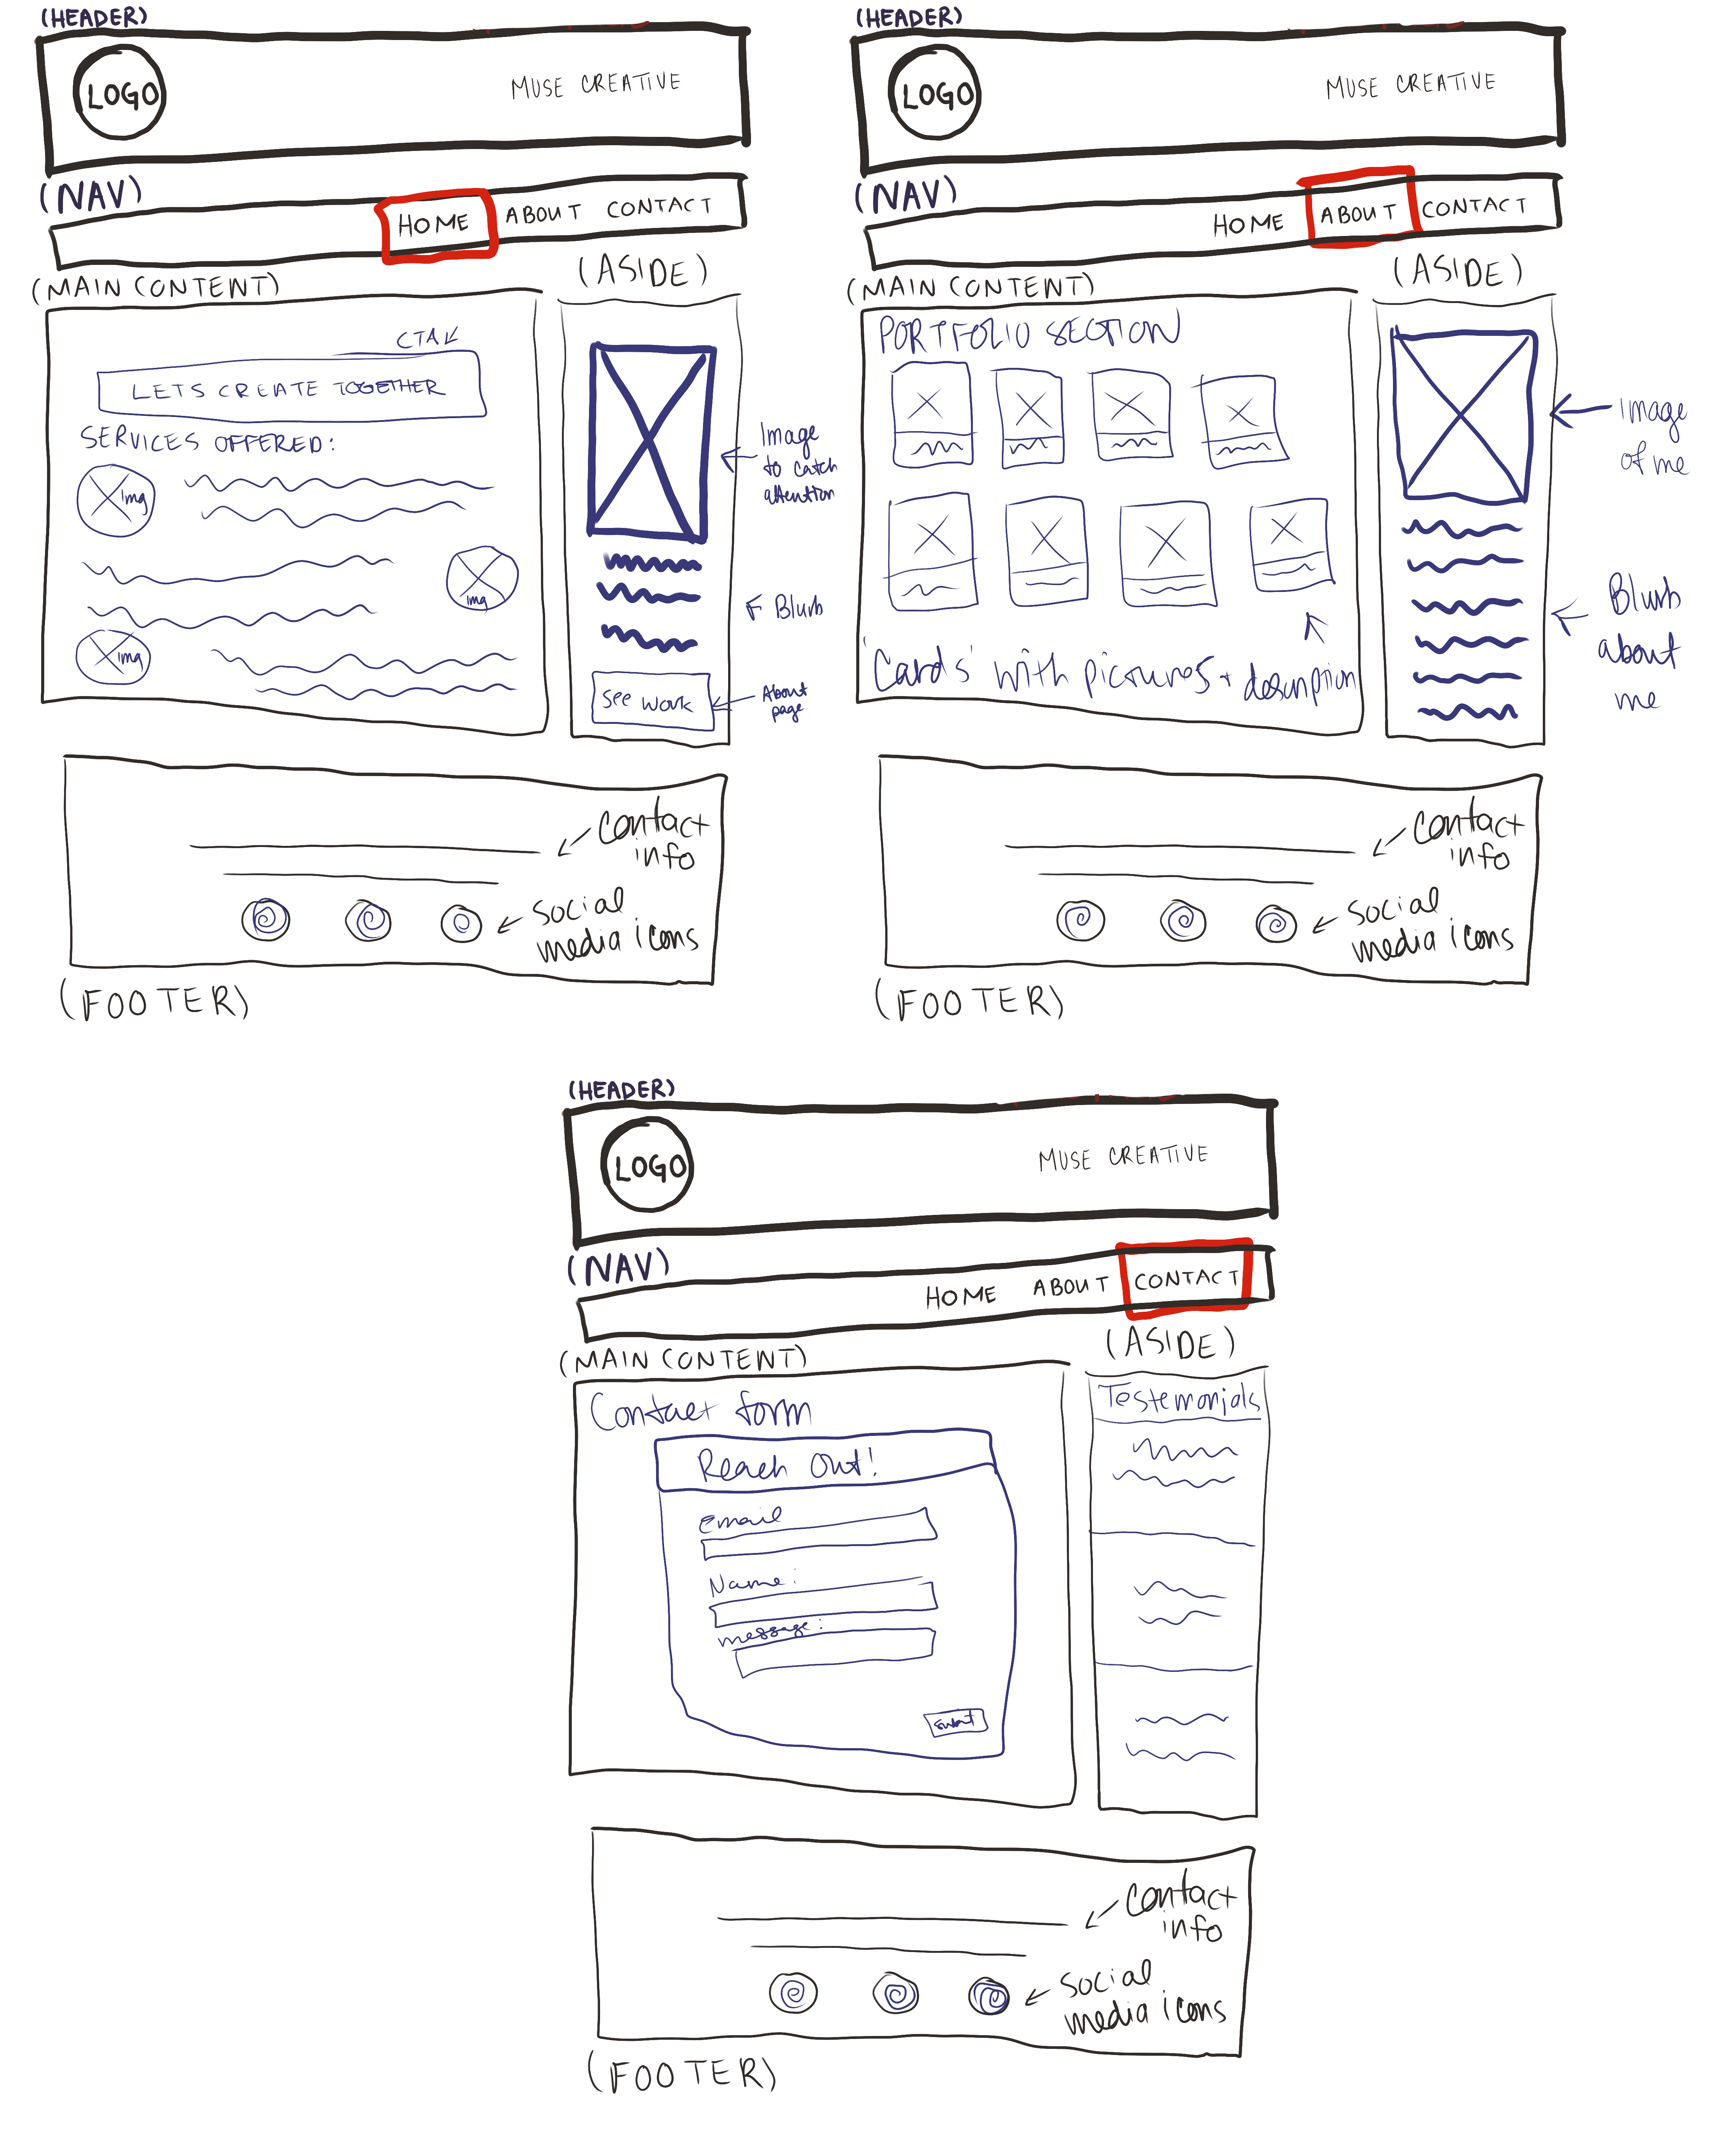 (HEADER)
LOGO
MUSE CREATIVE
(NAV)
HOME ABOUT CONTACT
(MAIN CONTENT)
(ASIDE)
CTA
LETS CREATE TOGETHER
SERVICES OFFERED:
img
img
img
Image
to catch
attention
Blurb
See work
About
page
contact
info
social
media icons
(FOOTER)
(HEADER)
LOGO
MUSE CREATIVE
(NAV)
HOME ABOUT CONTACT
(MAIN CONTENT)
(ASIDE)
PORTFOLIO SECTION
'Cards' with pictures + desumption
Image
of me
Blurb
about
me
contact
info
social
media icons
(FOOTER)
(HEADER)
LOGO
MUSE CREATIVE
(NAV)
HOME ABOUT CONTACT
(MAIN CONTENT)
(ASIDE)
Contact form
Reach Out!
Email
Name:
message:
Testemonials
contact
info
social
media icons
(FOOTER)